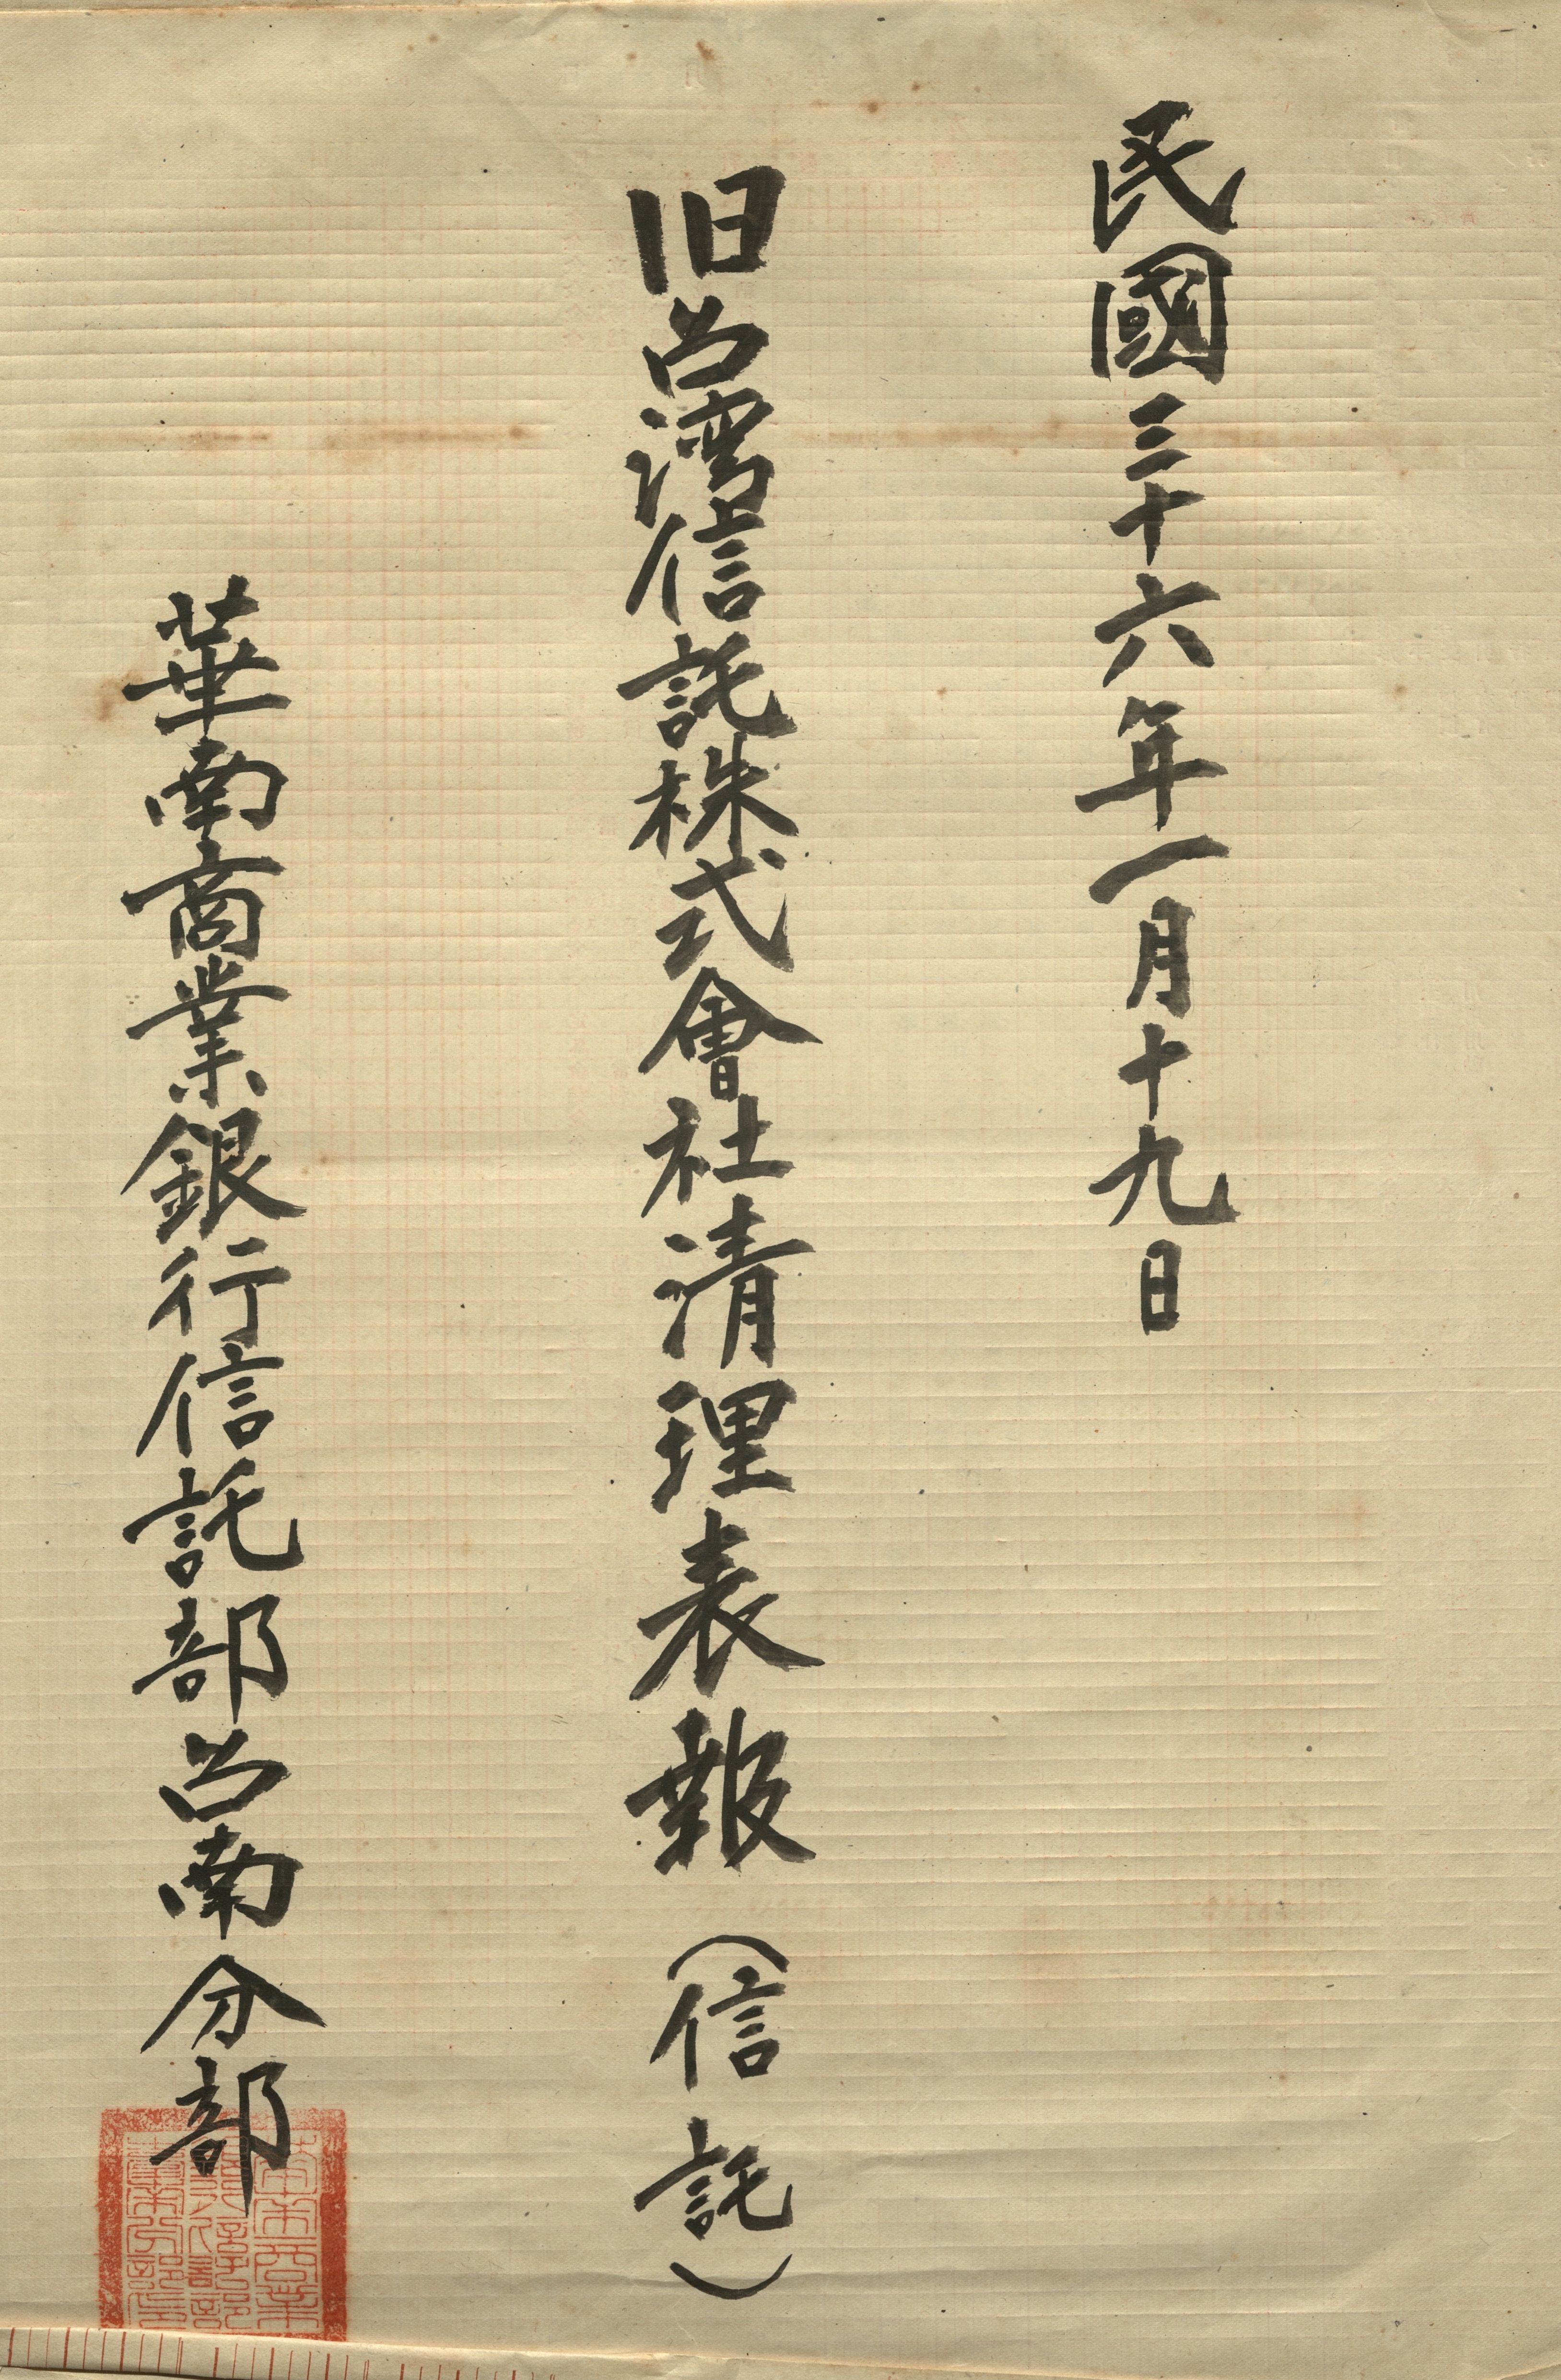 民國三十六年一月十九日
旧台湾信託株式會社清理表報（信託）
華南商業銀行信託部台南分部